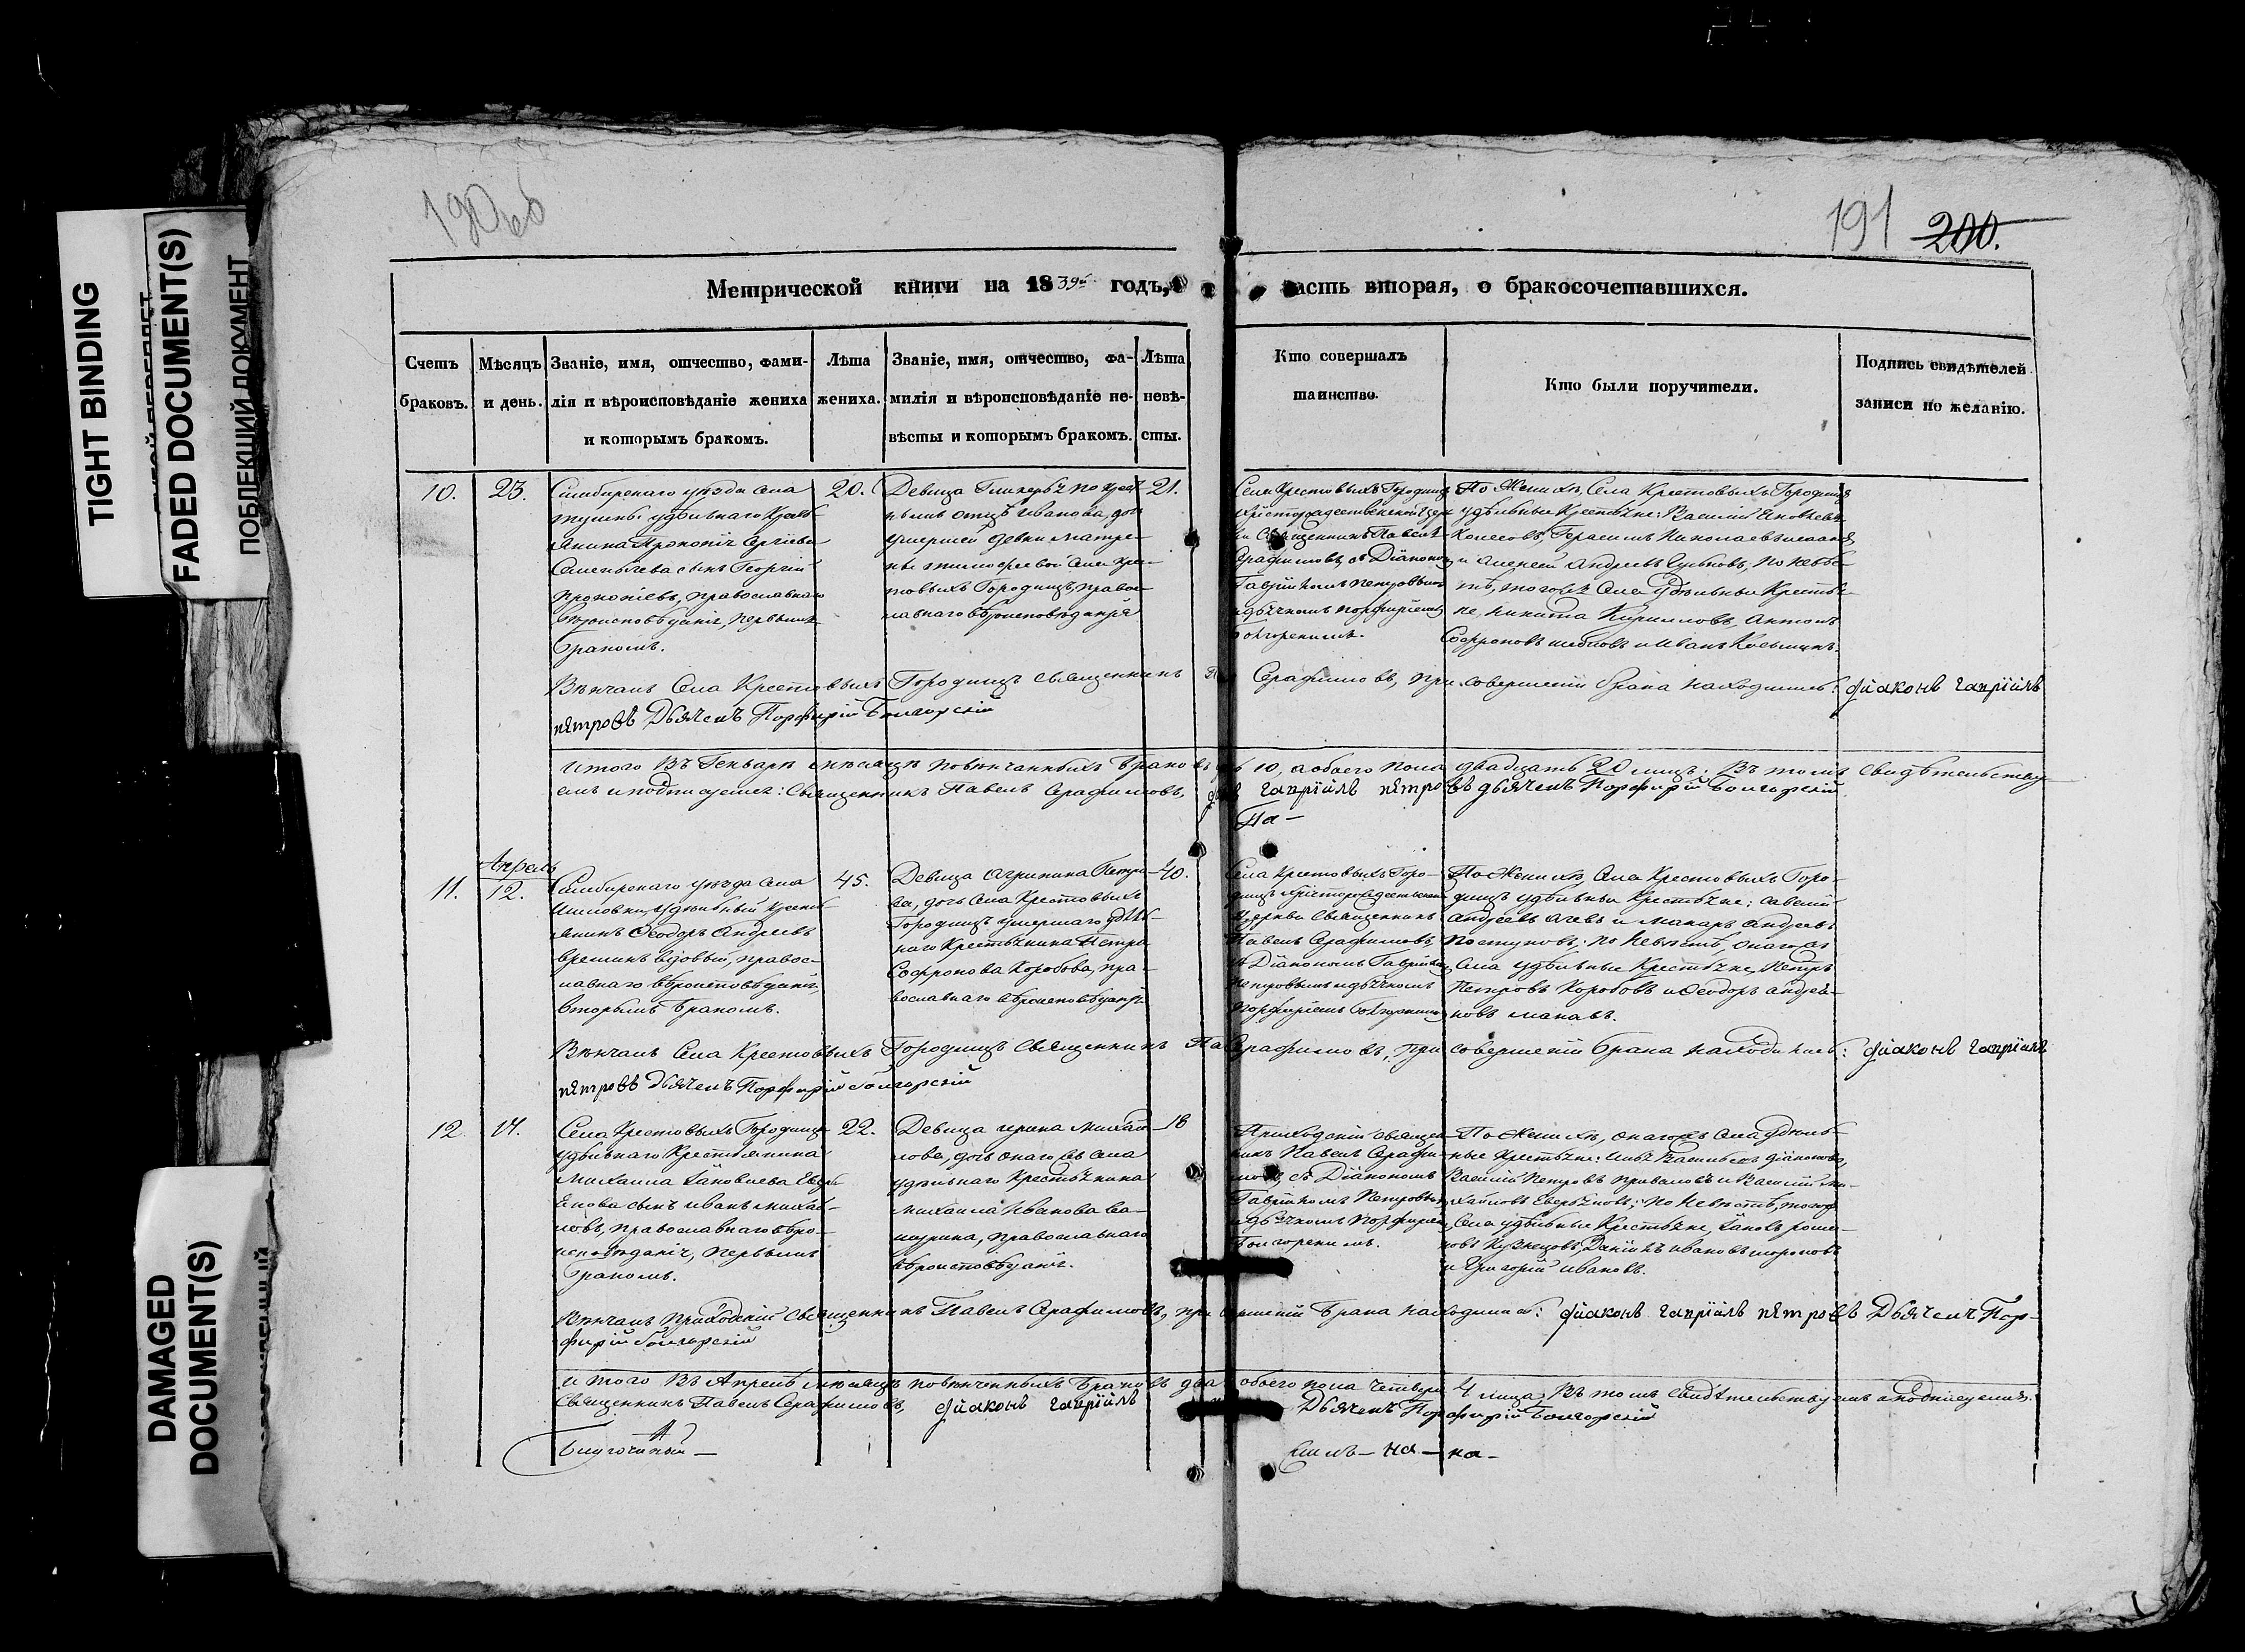 TIGHT BINDING
FADED DOCUMENT(S)
ПОБЛЕКШИЙ ДОКУМЕНТ
DAMAGED
DOCUMENT(S)
190об
191 200.
Метрической книги на 1839й годъ,
часть вторая, о бракосочетавшихся.
Счетъ
браковъ.
Мѣсяцъ
и день.
Званіе, имя, отчество, фами-
лія и вѣроисповѣданіе жениха
и которымъ бракомъ.
Лѣта
жениха.
Званіе, имя, отчество, фа-
милія и вѣроисповѣданіе не-
вѣсты и которымъ бракомъ.
Лѣта
невѣ-
сты.
Кто совершалъ
таинство.
Кто были поручители.
Подпись свидѣтелей
записи по желанію.
10.
23.
Симбирскаго уѣзда села
удѣльнаго Кресть
янина Прокопія Сергіева
сынъ Георгій
Прокопіевъ, православнаго
вѣроисповѣданія, первымъ
бракомъ.
20.
Девица по крест
ному отцѣ Иванова, дочь
умершей девки Матре-
ны Тимофеевой Села Крес-
товыхъ Городищъ, право-
славнаго вѣроисповѣданія
21.
Села Крестовыхъ Городищъ
Христорождественской Цер
ки Священникъ Павелъ
Серафимовъ, съ Діакономъ
Гавріиломъ Петровымъ
и дьячкомъ Порфиріемъ
Болгорскимъ.
По Женихѣ, Села Крестовыхъ Городищъ
удѣльные Крестьяне: Василій Яковлевъ
Колесовъ, Герасимъ Николаевъ
и Алексей Андреевъ по невѣс-
тѣ, тогожъ Села Удѣльные Крестья-
не, Никита Кириловъ, Антонъ
Софроновъ и Иванъ
Вѣнчалъ Села Крестовыхъ Городищъ Священникъ Па Серафимовъ, при совершеніи брака находились: Діаконъ Гавріилъ
Петровъ Дьячекъ Порфирій Болгорскій
Итого Въ Генварѣ мѣсяцѣ повѣнчанныхъ Браковъ 10, а обоего пола двадцать 20 лицъ; Въ томъ свидѣтельству
емъ и подписуемся: Священникъ Павелъ Серафимовъ, Гавріилъ Петровъ Дьячекъ Порфирій Болгорскій
Па-
Апрель
11.
12.
Симбирскаго уѣзда Села
удѣльный Кресть
янинъ Ѳеодоръ Андреевъ
вдовый, правос-
лавнаго вѣроисповѣданія,
вторымъ бракомъ.
45.
Девица Агрипина Петро
ва, дочь Села Крестовыхъ
Городищъ умершаго удѣль-
наго Крестьянина Петра
Софронова Коробова, пра-
вославнаго вѣроисповѣданія
40.
Села Крестовыхъ Горо-
дищъ Христорождественской
Церкви Священникъ
Павелъ Серафимовъ,
съ Діакономъ Гавріиломъ
Петровымъ и дьячкомъ
Порфиріемъ Болгорскимъ
По Женихѣ Села Крестовыхъ Горо-
дищъ удѣльные Крестьяне: Савелій
Андреевъ и Макаръ Андреевъ
по Невѣстѣ, онагожъ
Села удѣльные Крестьяне, Петръ
Петровъ Коробовъ и Ѳеодоръ Андрея-
новъ
Вѣнчалъ Села Крестовыхъ Городищъ Священникъ Па Серафимовъ, при совершеніи брака находились: Діаконъ Гавріилъ
Петровъ Дьячекъ Порфирій Болгорскій
12.
Села Крестовыхъ Городищъ
удѣльнаго Крестьянина
Михаила Іаковлева
сынъ Иванъ Михай-
ловъ, православнаго вѣро-
исповѣданія, первымъ
бракомъ.
22.
Девица Ирина Михай-
лова, дочь онагожъ Села
удѣльнаго Крестьянина
Михаила Иванова
православнаго
вѣроисповѣданія.
18
Приходскій священ-
никъ Павелъ Серафи-
мовъ, съ Діакономъ
Гавріиломъ Петровымъ
и дьячкомъ Порфиріемъ
Болгорскимъ.
По Женихѣ, онагожъ Села удѣль-
ные Крестьяне:
Василій Петровъ и Василій Ми-
хайловъ по Невѣстѣ, тогожъ
Села удѣльные Крестьяне, Іаковъ
Кузнецовъ, Даніилъ Ивановъ
и Григорій Ивановъ.
Вѣнчалъ Приходскій Священникъ Павелъ Серафимовъ, при совершеніи брака находились: Діаконъ Гавріилъ Петровъ Дьячекъ Пор-
фирій Болгорскій
Итого Въ Апрелѣ мѣсяцѣ повѣнчанныхъ Браковъ два обоего пола четверо 4 лица, Въ томъ свидѣтельствуемъ и подписуемся.
Священникъ Павелъ Серафимовъ, Діаконъ Гавріилъ Дьячекъ Порфирій Болгорскій
Благочинный -